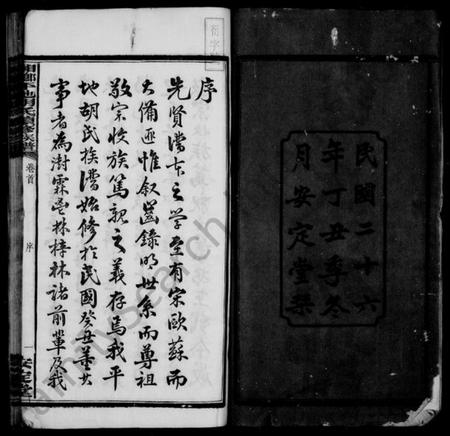 民國二十六
年丁丑季冬
月安定堂梓
序
先賢譜牒之學至有宋歐蘇而
大備匪惟叙齒錄明世系而尊祖
敬宗收族篤親之義存焉我平
地胡氏族譜始修於民國癸丑董其
事者為澍霖呈林梓林諸前輩及我
卷首
序
一
安定堂